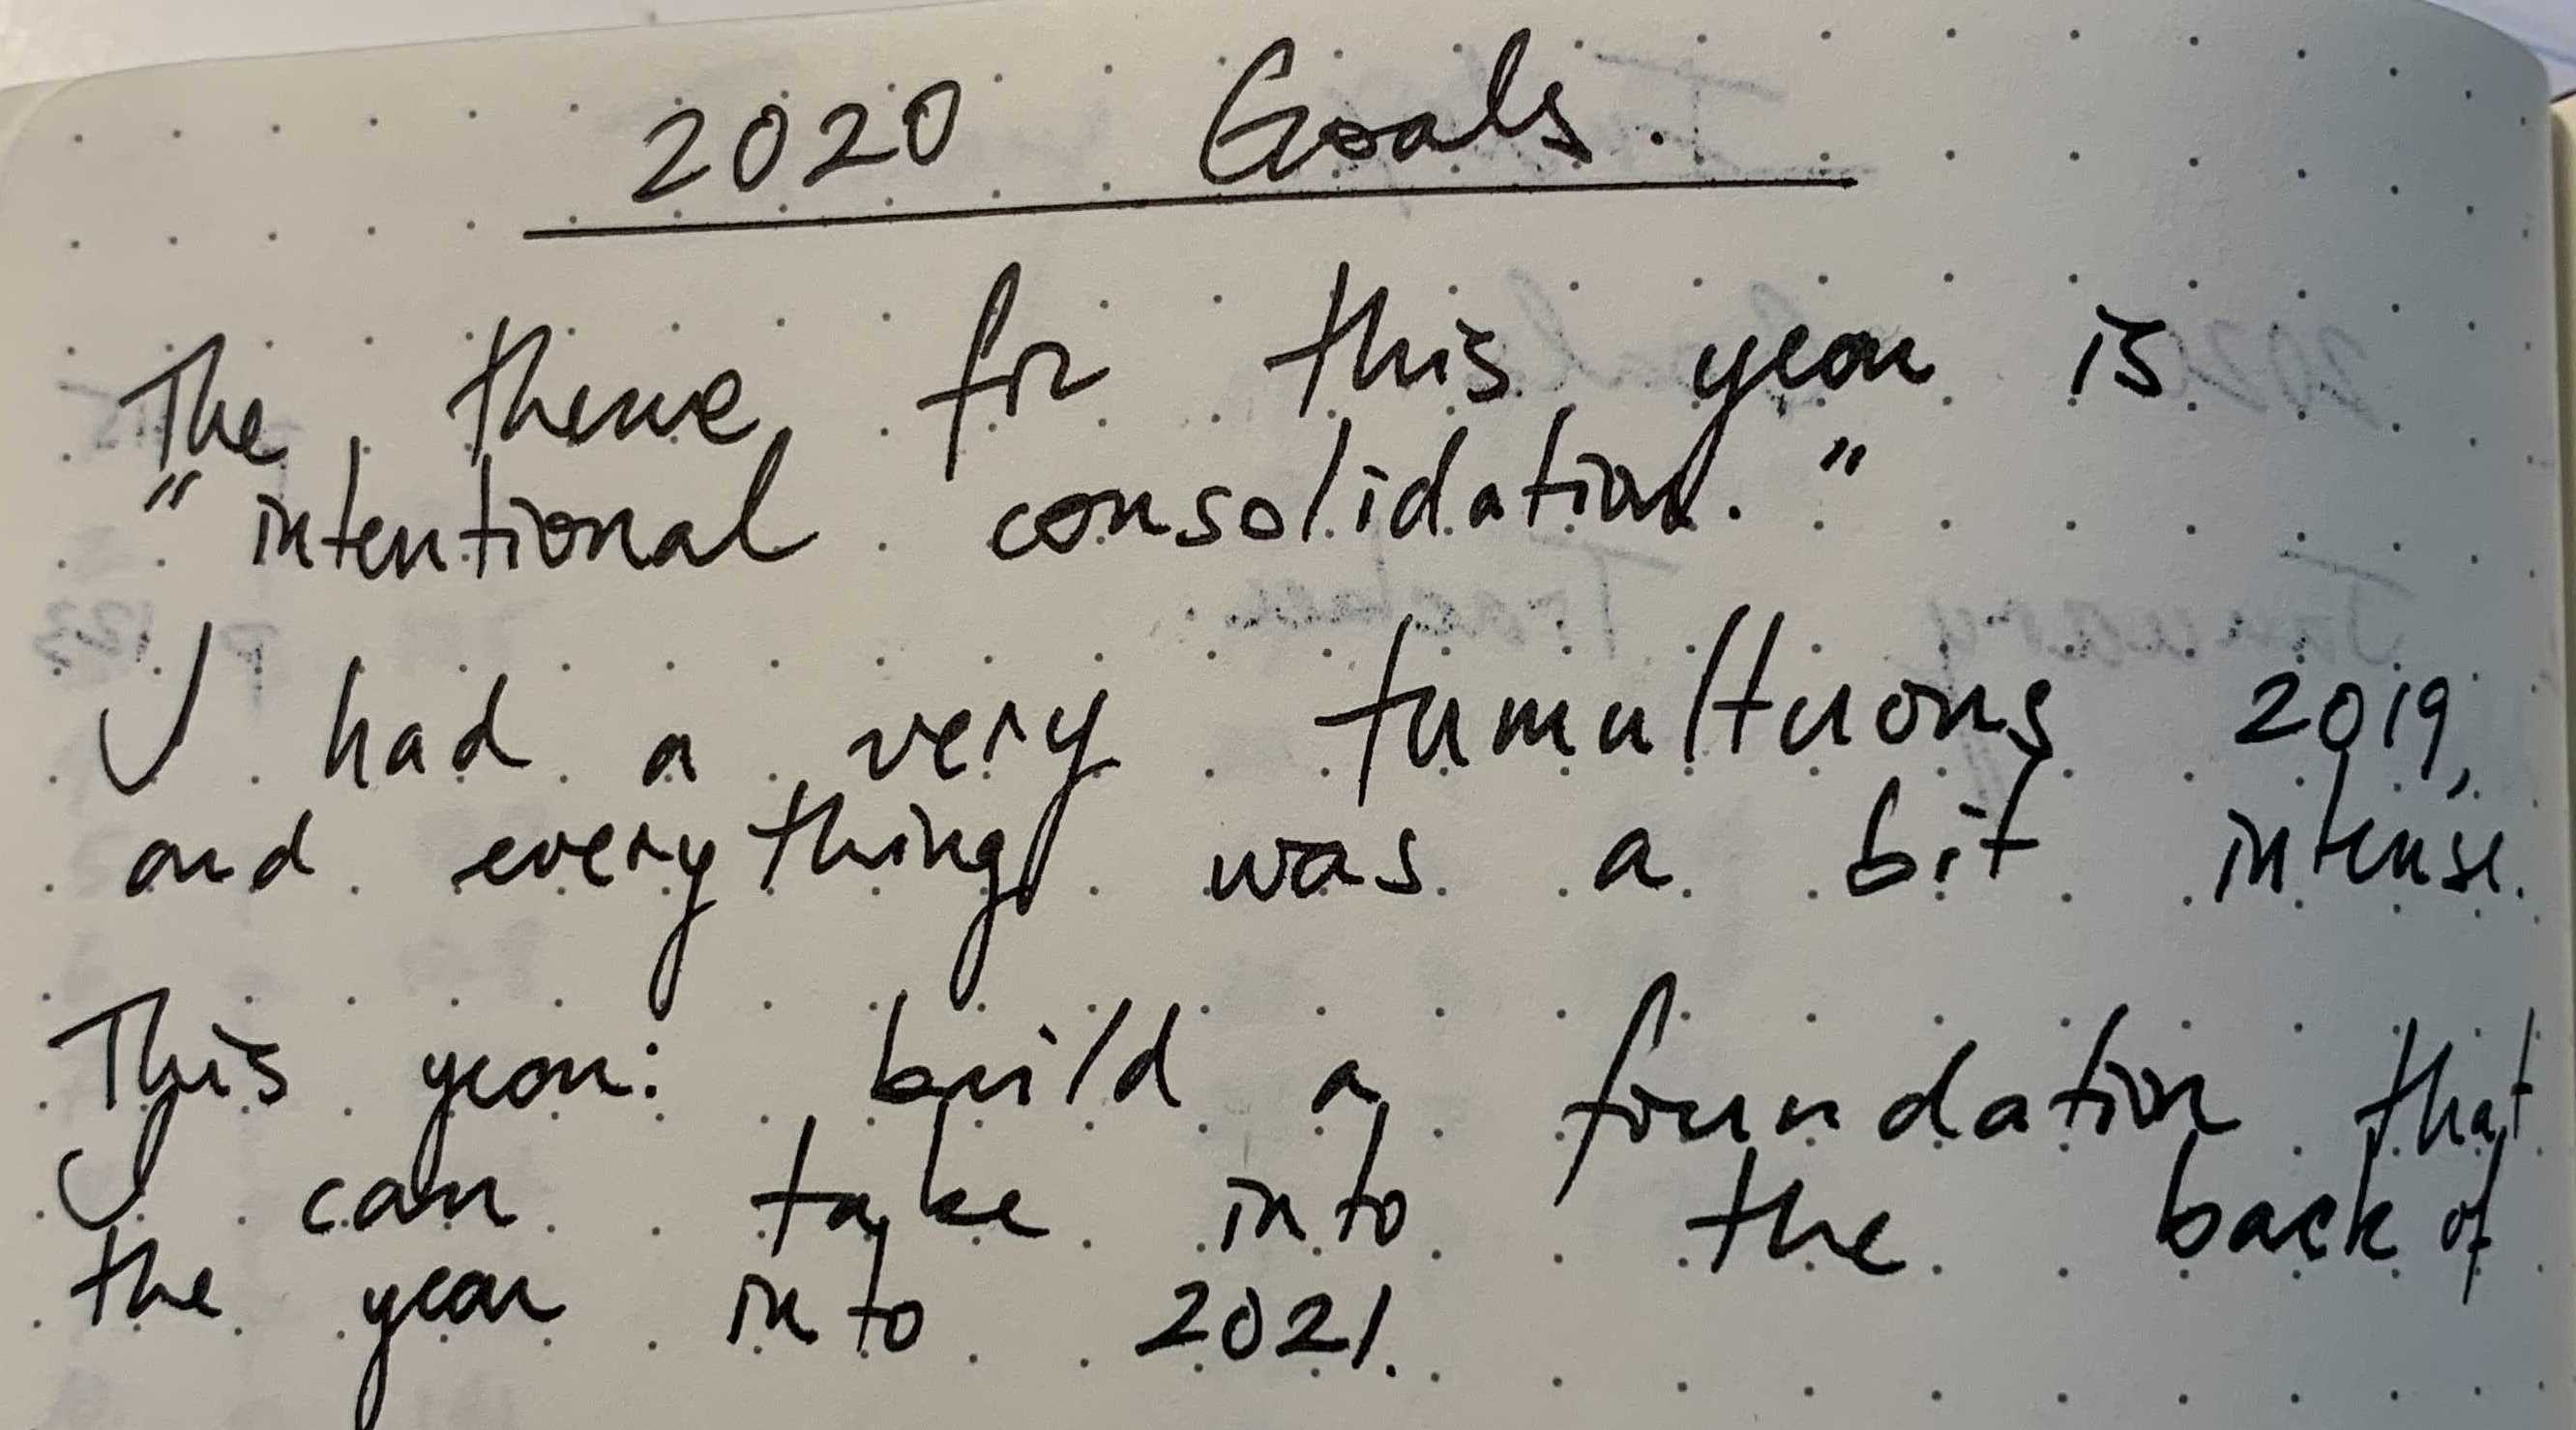 2020 Goals.
The theme for this year is
"intentional consolidation."
I had a very tumultuous 2019,
and everything was a bit intense.
This year: build a foundation that
I can take into the back of
the year into 2021.